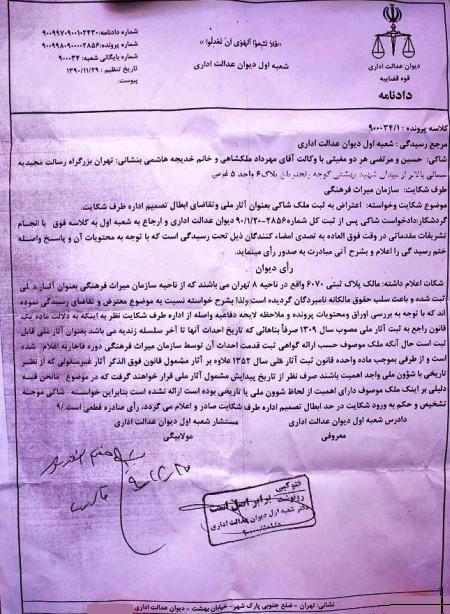 شماره دادنامه: ۹۰۰۹۹۷۰۹۰۰۱۰۲۴۳۰
شماره پرونده: ۹۰۰۹۹۸۰۹۰۰۰۰۲۸۵۶
شماره بایگانی شعبه: ۹۰۰۰۳۴
تاریخ تنظیم: ۱۳۹۰/۱۱/۲۹
پیوست:
«فلا تتبعوا الهوی ان تعدلوا»
شعبه اول دیوان عدالت اداری
دیوان عدالت اداری
قوه قضاییه
دادنامه
کلاسه پرونده: ۹۰۰۰۳۴/۱
مرجع رسیدگی: شعبه اول دیوان عدالت اداری
شاکی: حسین و مرتضی هر دو مغیثی با وکالت آقای مهرداد ملکشاهی و خانم خدیجه هاشمی بنشانی: تهران بزرگراه رسالت مجیدیه
شمالی بالاتر از میدان شهید بهشتی کوچه رنجبریان پلاک۶ واحد ۵ غربی
طرف شکایت: سازمان میراث فرهنگی
موضوع شکایت وخواسته: اعتراض به ثبت ملک شاکی بعنوان آثار ملی وتقاضای ابطال تصمیم اداره طرف شکایت.
گردشکار:دادخواست شاکی پس از ثبت کل شماره۲۸۵۶-۹۰/۱/۲۰ دیوان عدالت اداری و ارجاع به شعبه اول به کلاسه فوق با انجام
تشریفات مقدماتی در وقت فوق العاده به تصدی امضاء کنندگان ذیل تحت رسیدگی است که با توجه به محتویات آن و پاسخ واصله
ختم رسیدگی را اعلام و بشرح آتی مبادرت به صدور رأی مینماید.
رأی دیوان
شکات اعلام داشته: مالک پلاک ثبتی ۶۰۷۰ واقع در ناحیه ۸ تهران می باشند که از ناحیه سازمان میراث فرهنگی بعنوان آثار ملی
ثبت شده و باعث سلب حقوق مالکانه نامبردگان گردیده است.ولذا بشرح خواسته نسبت به موضوع معترض و تقاضای رسیدگی نموده
اند که با توجه به بررسی اوراق ومحتویات پرونده و ملاحظه لایحه دفاعیه واصله از اداره طرف شکایت نظر به اینکه به دلالت ماده یک
قانون راجع به ثبت آثار ملی مصوب سال ۱۳۰۹ صرفاً بناهائی که تاریخ احداث آنها تا آخر سلسله زندیه می باشد بعنوان آثار ملی قابل
ثبت است حال آنکه ملک موصوف حسب ارائه گواهی ثبت قدمت احداث آن توسط سازمان میراث فرهنگی دوره قاجاریه اعلام شده
است و از طرفی بموجب ماده واحده قانون ثبت آثار ملی سال ۱۳۵۲ علاوه بر آثار مشمول قانون فوق الذکر آثار غیرمنقولی که از نظر
تاریخی یا شؤون ملی واجد اهمیت باشند صرف نظر از تاریخ پیدایش مشمول آثار ملی قرار خواهند گرفت که در موضوع مانحن فیه
دلیلی بر اینکه ملک موصوف دارای اهمیت از لحاظ شوون ملی یا تاریخی بوده است ارائه نشده است بنابراین خواسته شاکی موجه
تشخیص و حکم به ورود شکایت در حد ابطال تصمیم اداره طرف شکایت صادر و اعلام می گردد، رأی صادره قطعی است /۹
دادرس شعبه اول دیوان عدالت اداری
مستشار شعبه اول دیوان عدالت اداری
معروفی
مولابیگی
فتوکپی
رونوشت برابر اصل است
دفتر شعبه اول دیوان عدالت اداری
نشانی: تهران - ضلع جنوبی پارک شهر- خیابان بهشت - دیوان عدالت اداری